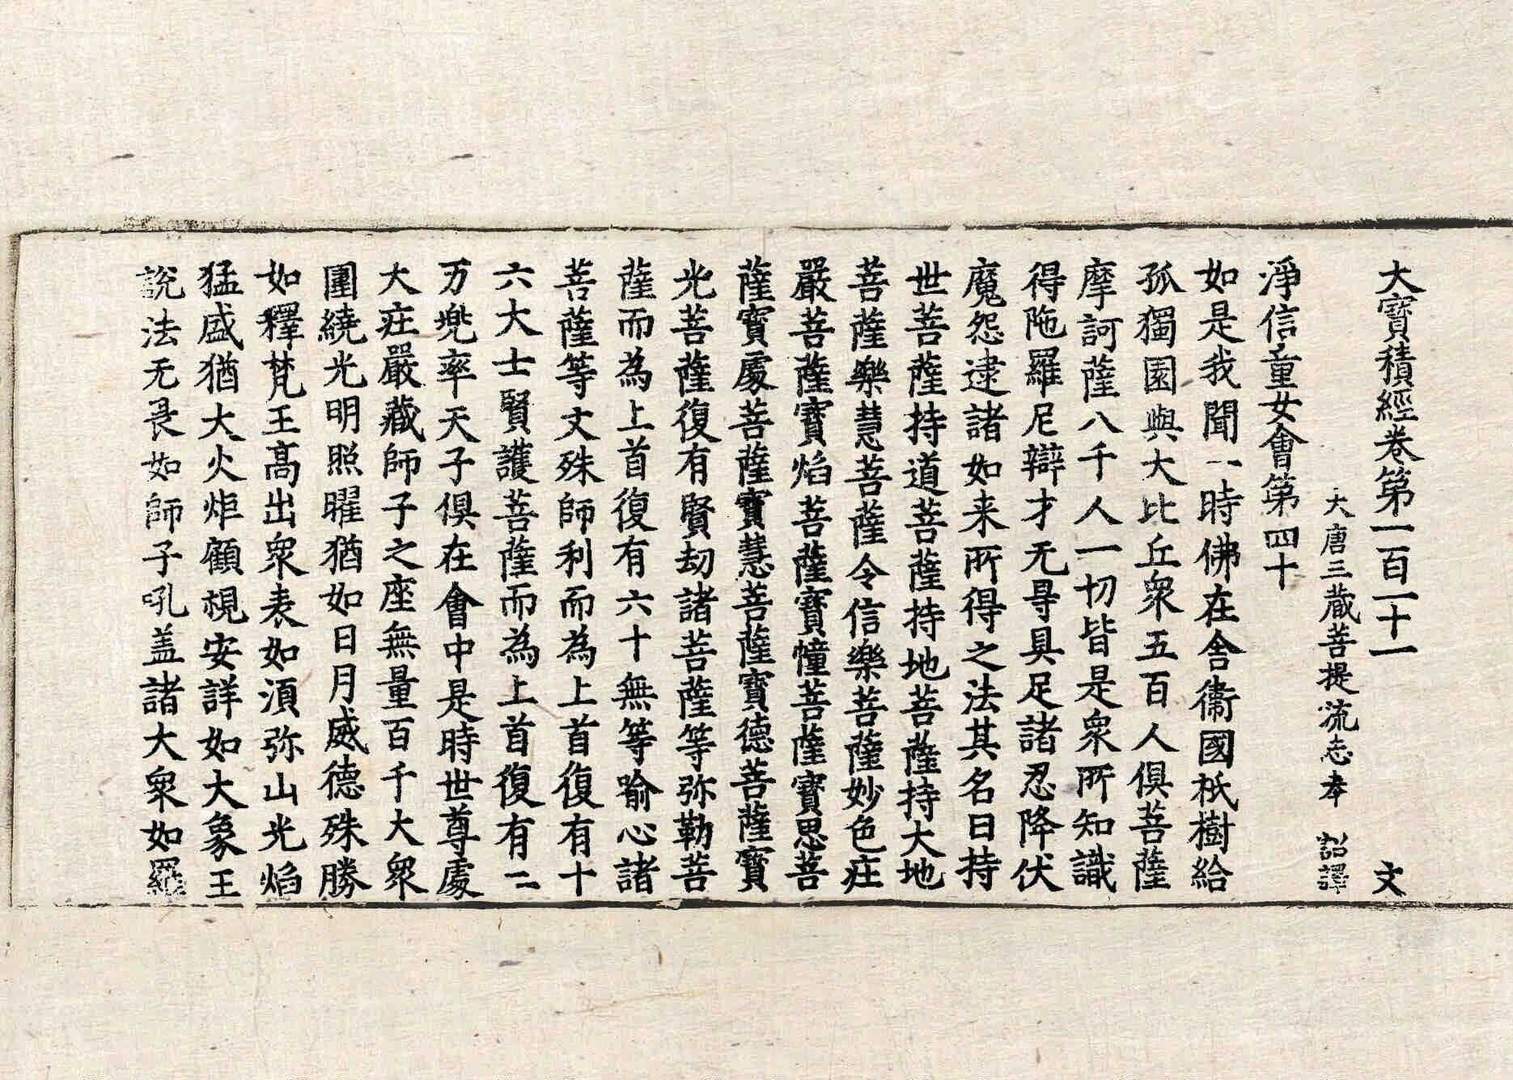 大寶積經卷第一百一十一 文
大唐三藏菩提流志奉 詔譯
淨信童女會第四十
如是我聞一時佛在舍衞國祇樹給
孤獨園與大比丘衆五百人俱菩薩
摩訶薩八千人一切皆是衆所知識
得陁羅尼辯才无㝵具足諸忍降伏
魔怨逮諸如来所得之法其名曰持
世菩薩持道菩薩持地菩薩持大地
菩薩樂慧菩薩令信樂菩薩妙色庄
嚴菩薩寶焰菩薩寶幢菩薩寶思菩
薩寶處菩薩寶慧菩薩寶德菩薩寶
光菩薩復有賢劫諸菩薩等弥勒菩
薩而為上首復有六十無等喻心諸
菩薩等文殊師利而為上首復有十
六大士賢護菩薩而為上首復有二
万兠率天子俱在會中是時世尊處
大庄嚴藏師子之座無量百千大衆
圍繞光明照曜猶如日月威德殊勝
如釋梵王高出衆表如湏弥山光焰
猛盛猶大火炬顧視安詳如大象王
說法无畏如師子吼盖諸大衆如羅